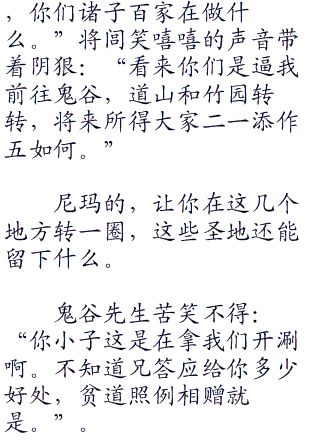 ，你们诸子百家在做什
么。”将闾笑嘻嘻的声音带
着阴狠：“看来你们是逼我
前往鬼谷，道山和竹园转
转，将来所得大家二一添作
五如何。”
尼玛的，让你在这几个
地方转一圈，这些圣地还能
留下什么。
鬼谷先生苦笑不得：
“你小子这是在拿我们开涮
啊。不知道兄答应给你多少
好处，贫道照例相赠就
是。”。